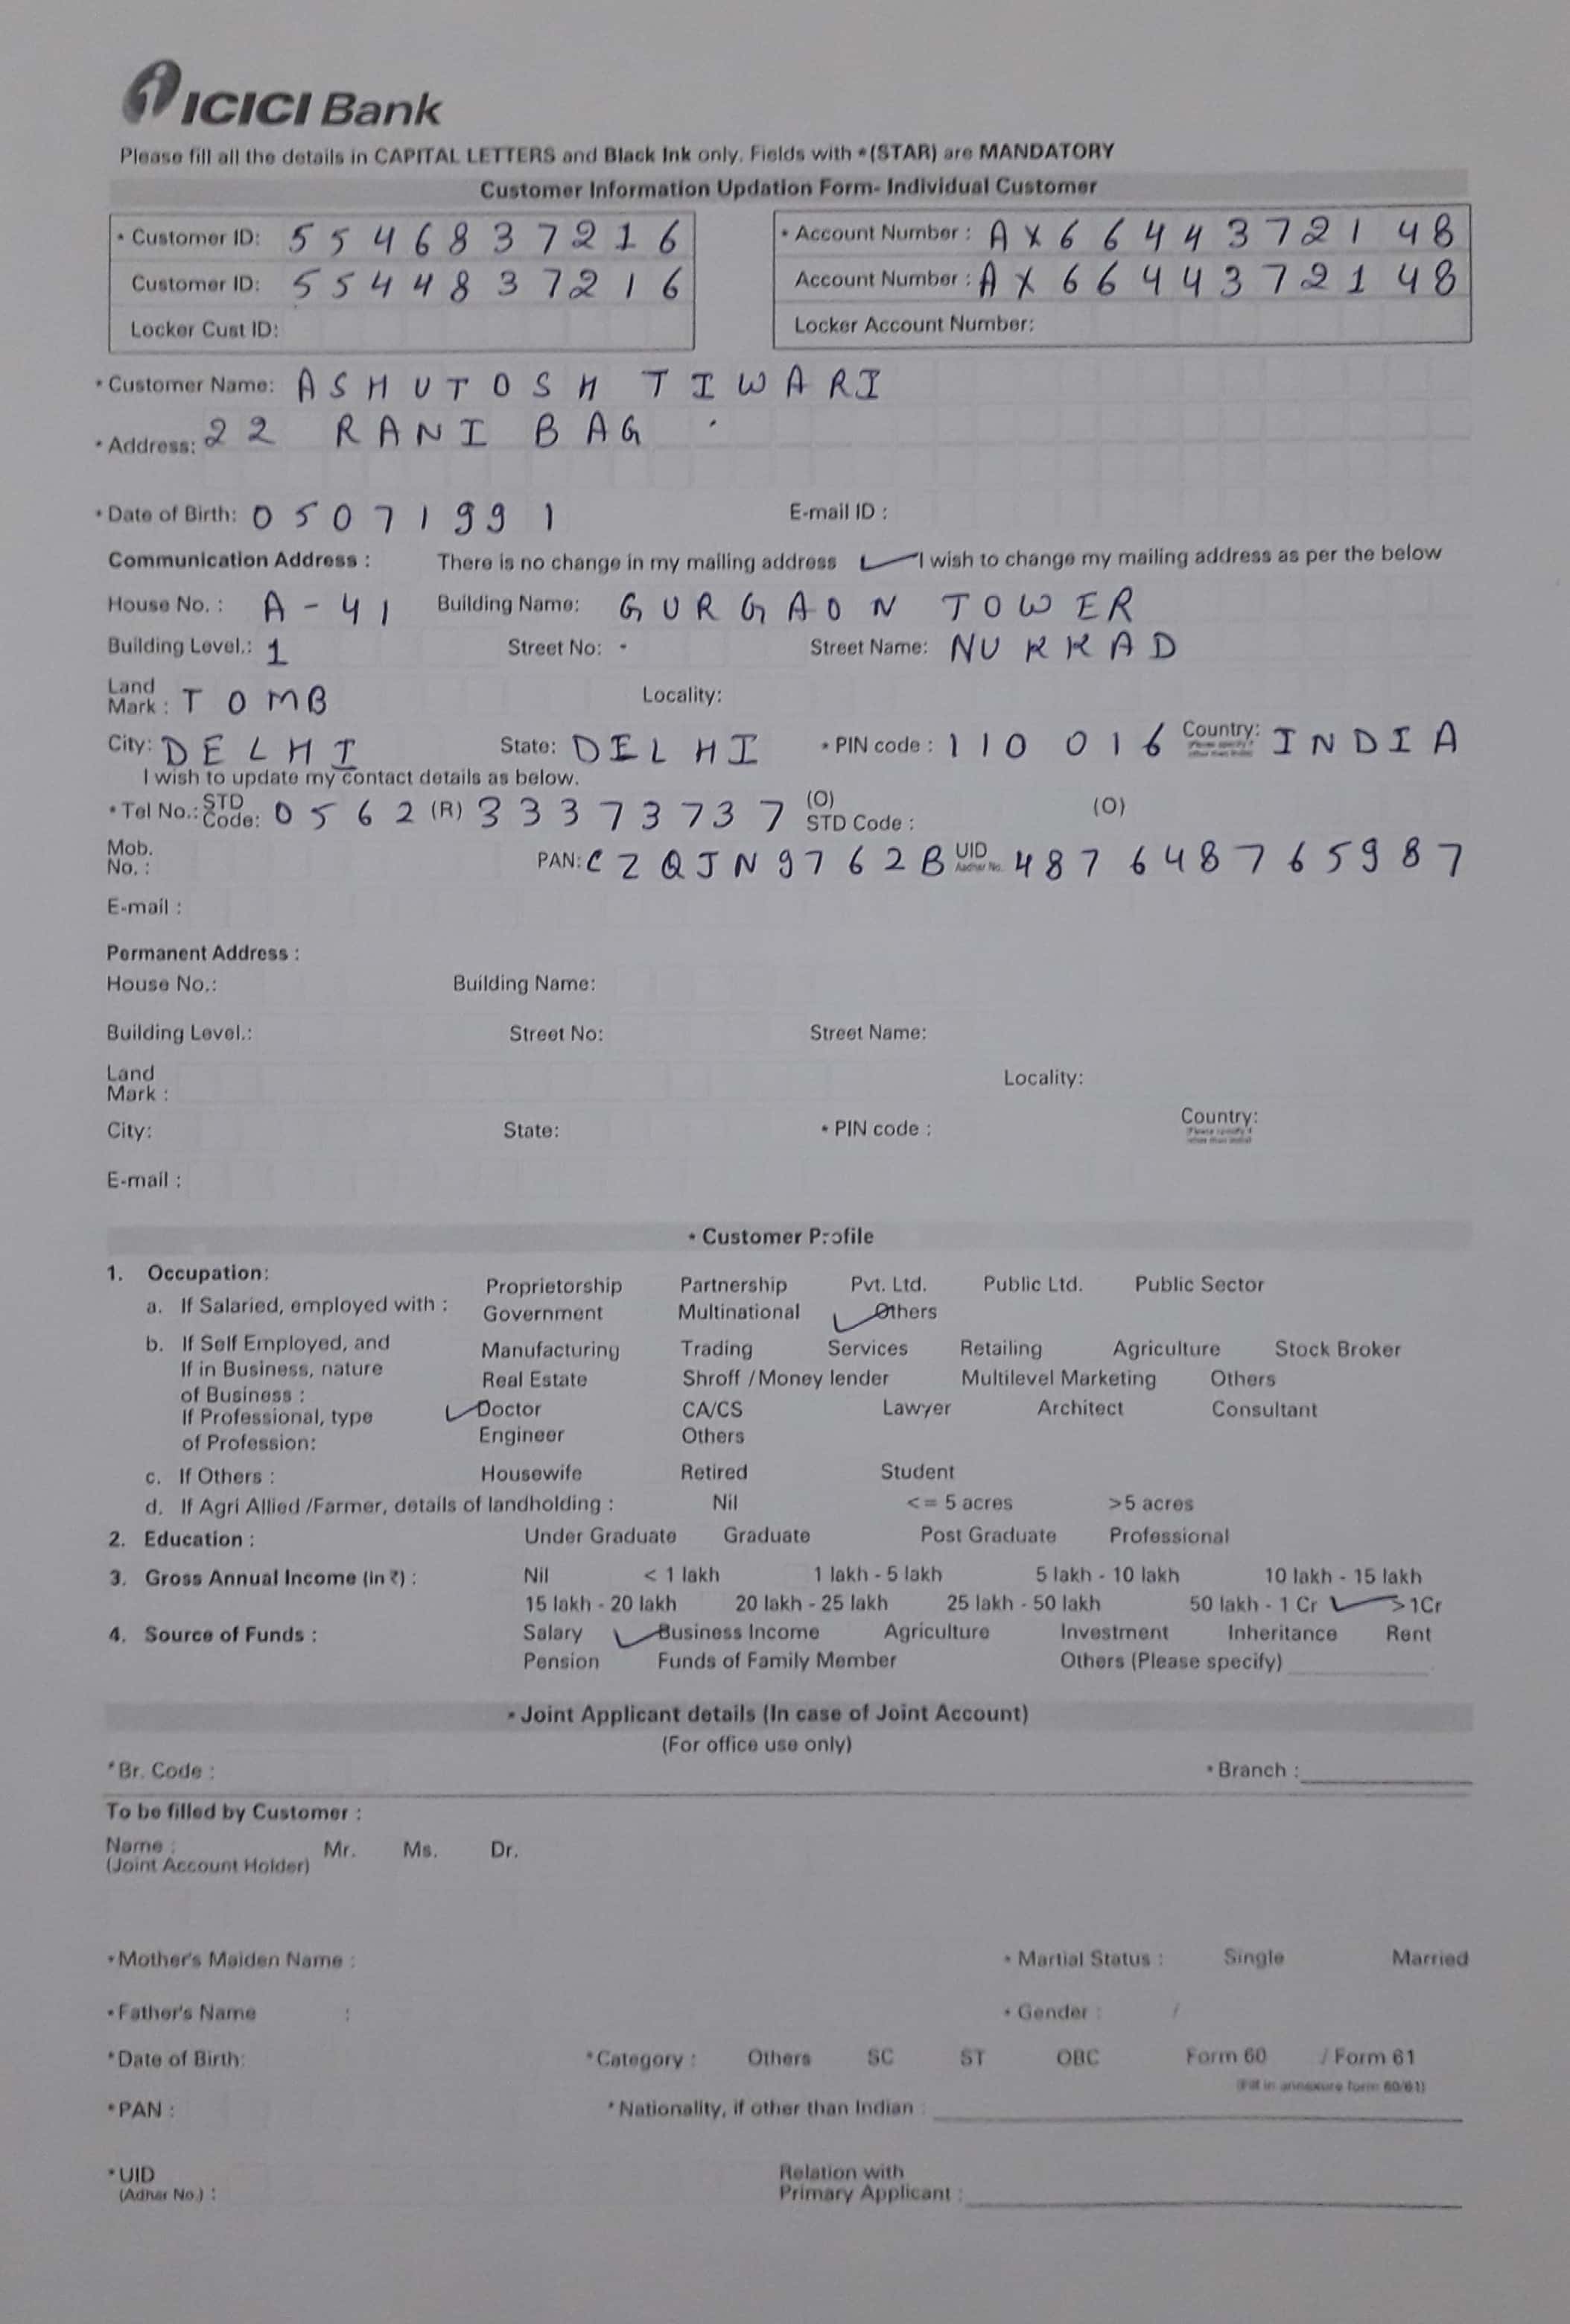 ICICI Bank
Please fill all the details in CAPITAL LETTERS and Black Ink only. Fields with *(STAR) are MANDATORY
Customer Information Updation Form- Individual Customer
* Customer ID: 5546837216 * Account Number : AX6644372148
Customer ID: 5544837216 Account Number : AX6644372148
Locker Cust ID: Locker Account Number:
* Customer Name: ASHUTOSH TIWARI
* Address: 22 RANI BAG
* Date of Birth: 05071991 E-mail ID :
Communication Address : There is no change in my mailing address ✓ I wish to change my mailing address as per the below
House No. : A-41 Building Name: GURGAON TOWER
Building Level.: 1 Street No: - Street Name: NUKKAD
Land Mark : TOMB Locality:
City: DELHI State: DELHI * PIN code : 110016 Country: (Please specify if other than India) INDIA
I wish to update my contact details as below.
* Tel No.: STD Code: 0562 (R) 33373737 (O) STD Code : (O)
Mob. No. : PAN: CZQJN9762B UID Aadhar No. 487648765987
E-mail :
Permanent Address :
House No.: Building Name:
Building Level.: Street No: Street Name:
Land Mark : Locality:
City: State: * PIN code : Country: (Please specify if other than India)
E-mail :
* Customer Profile
1. Occupation:
a. If Salaried, employed with : Proprietorship Partnership Pvt. Ltd. Public Ltd. Public Sector
Government Multinational ✓ Others
b. If Self Employed, and If in Business, nature of Business : Manufacturing Trading Services Retailing Agriculture Stock Broker
Real Estate Shroff /Money lender Multilevel Marketing Others
If Professional, type of Profession: ✓ Doctor CA/CS Lawyer Architect Consultant
Engineer Others
c. If Others : Housewife Retired Student
d. If Agri Allied /Farmer, details of landholding : Nil <= 5 acres >5 acres
2. Education : Under Graduate Graduate Post Graduate Professional
3. Gross Annual Income (in ₹) : Nil < 1 lakh 1 lakh - 5 lakh 5 lakh - 10 lakh 10 lakh - 15 lakh
15 lakh - 20 lakh 20 lakh - 25 lakh 25 lakh - 50 lakh 50 lakh - 1 Cr ✓ >1Cr
4. Source of Funds : Salary ✓ Business Income Agriculture Investment Inheritance Rent
Pension Funds of Family Member Others (Please specify)
* Joint Applicant details (In case of Joint Account)
(For office use only)
*Br. Code : * Branch :
To be filled by Customer :
Name : (Joint Account Holder) Mr. Ms. Dr.
* Mother's Maiden Name : * Martial Status : Single Married
* Father's Name : * Gender : /
*Date of Birth: *Category : Others SC ST OBC Form 60 / Form 61
(Fill in annexure form 60/61)
*PAN : * Nationality, if other than Indian :
*UID (Adhar No.) : Relation with Primary Applicant :